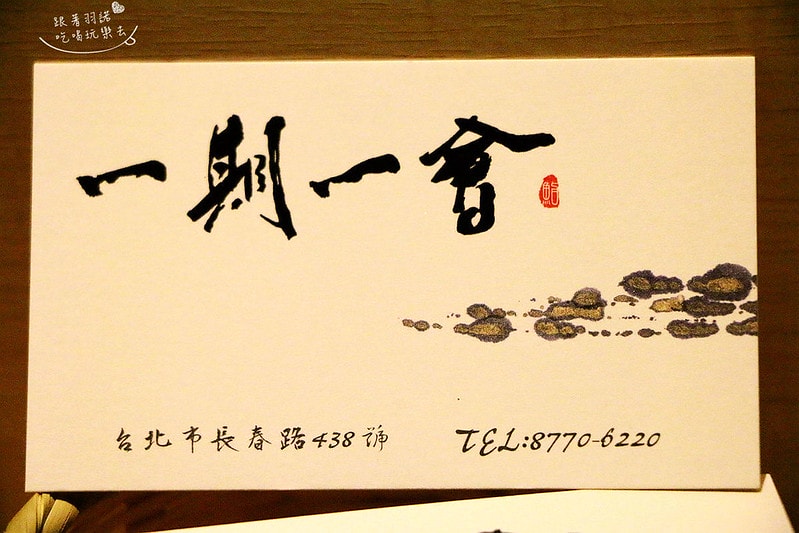 跟著羽諾
吃喝玩樂去
一期一會
台北市長春路438號
TEL:8770-6220